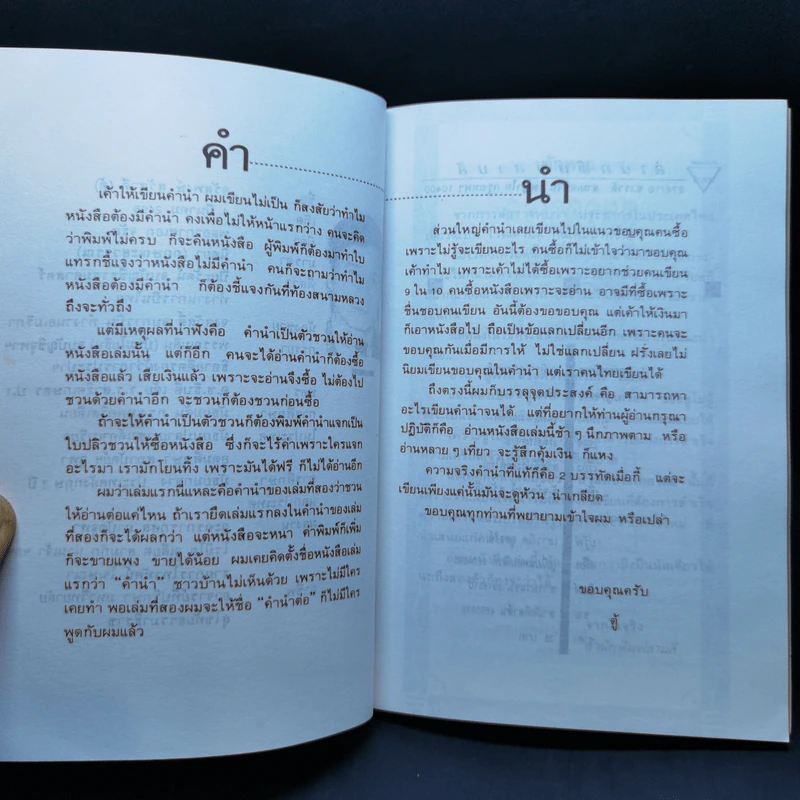 คำ
เค้าให้เขียนคำนำ ผมเขียนไม่เป็น ก็สงสัยว่าทำไม
หนังสือต้องมีคำนำ คงเพื่อไม่ให้หน้าแรกว่าง คนจะคิด
ว่าพิมพ์ไม่ครบ ก็จะคืนหนังสือ ผู้พิมพ์ก็ต้องมาทำใบ
แทรกชี้แจงว่าหนังสือไม่มีคำนำ คนก็จะถามว่าทำไม
หนังสือต้องมีคำนำ ก็ต้องชี้แจงกันที่ท้องสนามหลวง
ถึงจะทั่วถึง
แต่มีเหตุผลที่น่าฟังคือ คำนำเป็นตัวชวนให้อ่าน
หนังสือเล่มนั้น แต่ก็อีก คนจะได้อ่านคำนำก็ต้องซื้อ
หนังสือแล้ว เสียเงินแล้ว เพราะจะอ่านจึงซื้อ ไม่ต้องไป
ชวนด้วยคำนำอีก จะชวนก็ต้องชวนก่อนซื้อ
ถ้าจะให้คำนำเป็นตัวชวนก็ต้องพิมพ์คำนำแจกเป็น
ใบปลิวชวนให้ซื้อหนังสือ ซึ่งก็จะไร้ค่าเพราะใครแจก
อะไรมา เรามักโยนทิ้ง เพราะมันได้ฟรี ก็ไม่ได้อ่านอีก
ผมว่าเล่มแรกนี่แหละคือคำนำของเล่มที่สองว่าชวน
ให้อ่านต่อแค่ไหน ถ้าเรายืดเล่มแรกลงในคำนำของเล่ม
ที่สองก็จะได้ผลกว่า แต่หนังสือจะหนา ค่าพิมพ์ก็เพิ่ม
ก็จะขายแพง ขายได้น้อย ผมเคยคิดตั้งชื่อหนังสือเล่ม
แรกว่า “คำนำ” ชาวบ้านไม่เห็นด้วย เพราะไม่มีใคร
เคยทำ พอเล่มที่สองผมจะให้ชื่อ “คำนำต่อ” ก็ไม่มีใคร
พูดกับผมแล้ว
นำ
ส่วนใหญ่คำนำเลยเขียนไปในแนวขอบคุณคนซื้อ
เพราะไม่รู้จะเขียนอะไร คนซื้อก็ไม่เข้าใจว่ามาขอบคุณ
เค้าทำไม เพราะเค้าไม่ได้ซื้อเพราะอยากช่วยคนเขียน
9 ใน 10 คนซื้อหนังสือเพราะจะอ่าน อาจมีที่ซื้อเพราะ
ชื่นชอบคนเขียน อันนี้ต้องขอขอบคุณ แต่เค้าให้เงินมา
ก็เอาหนังสือไป ถือเป็นข้อแลกเปลี่ยนอีก เพราะคนจะ
ขอบคุณกันเมื่อมีการให้ ไม่ใช่แลกเปลี่ยน ฝรั่งเลยไม่
นิยมเขียนขอบคุณในคำนำ แต่เราคนไทยเขียนได้
ถึงตรงนี้ผมก็บรรลุจุดประสงค์ คือ สามารถหา
อะไรเขียนคำนำจนได้ แต่ที่อยากให้ท่านผู้อ่านกรุณา
ปฏิบัติก็คือ อ่านหนังสือเล่มนี้ช้า ๆ นึกภาพตาม หรือ
อ่านหลาย ๆ เที่ยว จะรู้สึกคุ้มเงิน ก็แพง
ความจริงคำนำที่แท้ก็คือ 2 บรรทัดเมื่อกี้ แต่จะ
เขียนเพียงแค่นั้นมันจะดูห้วน น่าเกลียด
ขอบคุณทุกท่านที่พยายามเข้าใจผม หรือเปล่า
ขอบคุณครับ